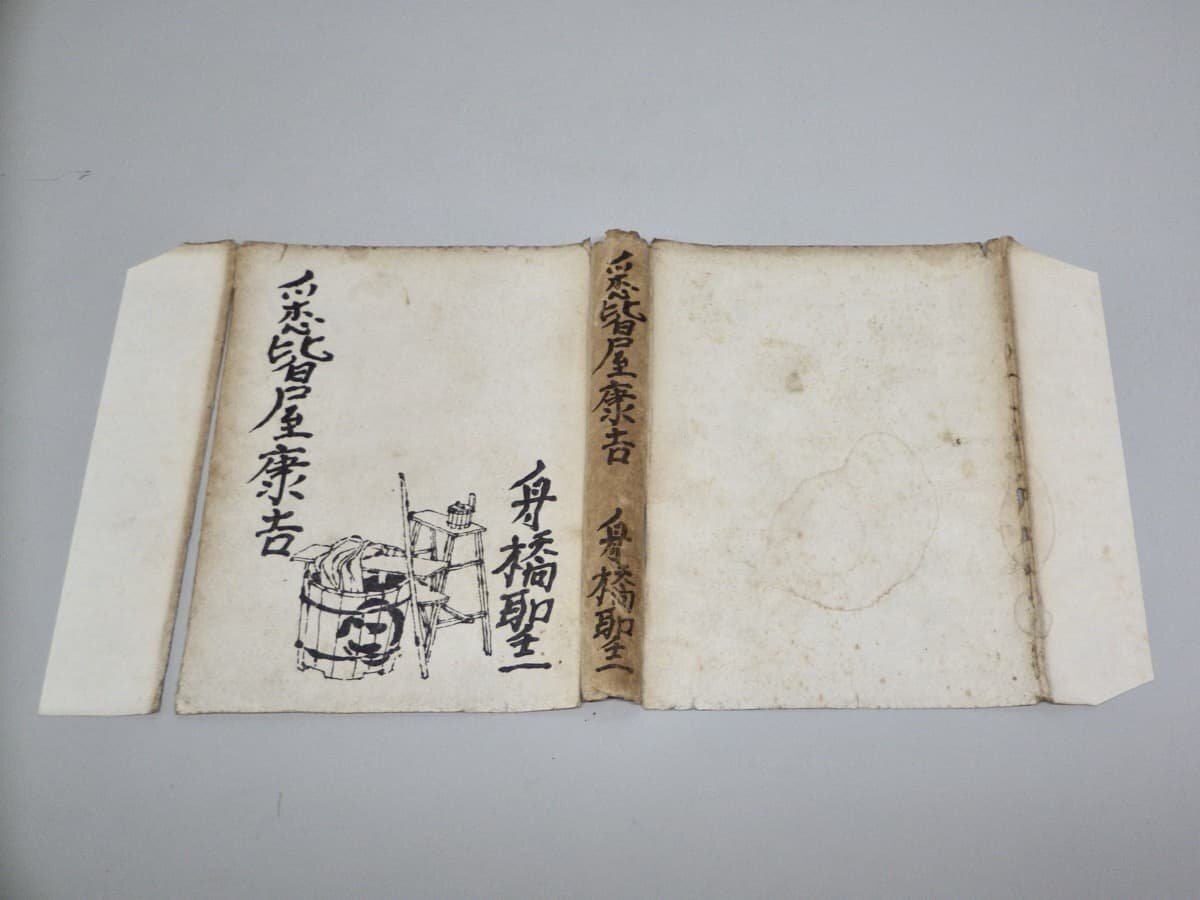 悉皆屋康吉
舟橋聖一
悉皆屋康吉
舟橋聖一